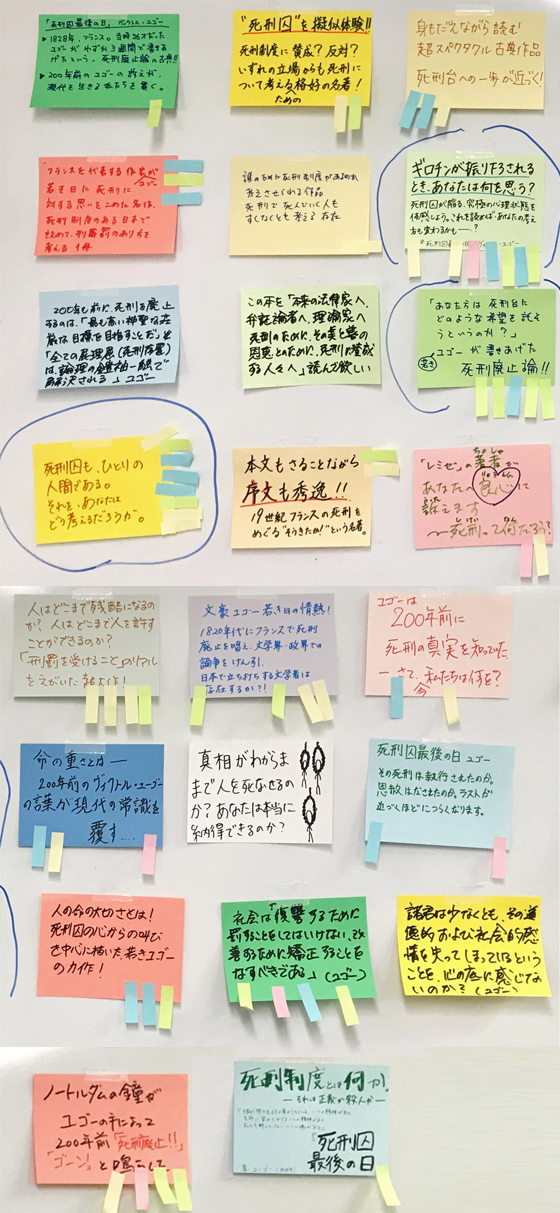 『死刑囚最後の日』 ヴィクトル・ユゴー
▶1828年、フランス。当時26才だった
ユゴーがわずか3週間で書き
あげたという、死刑廃止論の古典!!
▶200年前のユゴーの教えが、
現代を生きる私たちを貫く。
"死刑囚"を擬似体験!!
死刑制度に賛成?反対?
いずれの立場からも死刑に
ついて考える格好の名著!
ための
身もだえながら読む
超スペクタクル古典作品
死刑台への一歩が近づく!
フランスを代表する作家が
ユゴー
若き日に死刑に
対する思いをこめた名作。
死刑制度のある日本で
改めて、刑罰のあり方を
考える1冊
誰のために死刑制度があるのか
考えさせられる作品
死刑で死んでいく人も
すくなくとも考える存在
ギロチンが振り下ろされる
とき、あなたは何を思う?
死刑囚が陥る、究極の心理状態を
体感しよう。これを読めば、あなたの考え
方も変わるかも―?
200年も前に、死刑を廃止
するのは、「最も高い神聖な
目標を目指すことだ」と
「全ての屁理屈(死刑存置)
は、論理の
解決される」ユゴー
この本を「本来の法律家へ、
弁証論者へ、理論家へ
死刑のために、その美と善の
恩恵とのために、死刑に賛成
する人々へ」読んで欲しい
「あなた方は死刑台に
どのような希望を託そ
うというのか?」
若き
ユゴーが書きあげた
死刑廃止論!!
死刑囚も、ひとりの
人間である。
それを、あなたは
どう考えるだろうか。
本文もさることながら
序文も秀逸!!
19世紀フランスの死刑を
めぐる"そうきたか!"という名著。
「レミゼ」の著者が
ちょしゃ
あなたへ良心に
訴えます
〜死刑って何だろう?
人はどこまで残酷になるの
か? 人はどこまで人を許す
ことができるのか?
「刑罰を受けること」のリアル
をえがいた超大作!
文豪ユゴー若き日の情熱!
1820年代にフランスで死刑
廃止を唱え、文学界・政界での
論争をけん引。
日本で立ち打ちする文学者は
存在するか?!
ユゴーは
200年前に
死刑の真実を知っていた
―さて、私たちは何を?
今
命の重さとは―
200年前のヴィクトル・ユーゴー
の言葉が現代の常識を
覆す…
真相がわからぬ
まで人を死なせるの
か? あなたは本当に
納得できるのか?
死刑囚最後の日 ユゴー
その死刑は執行されたのか。
恩赦はだされたのか。ラストが
近づくほどにつらくなります。
人の命の大切さとは!
死刑囚の心からの叫び
を中心に描いた、若きユゴー
の力作!
社会は「復讐するために
罰することをしてはいけない、改
善するために矯正することを
なすべきである」(ユゴー)
諸君は少なくとも、その道
徳的および社会的感
情を失ってしまっているという
ことを、心の底に感じな
いのか? (ユゴー)
ノートルダムの鐘が
ユゴーの手によって
200年前「死刑廃止!!」
「ゴーン」と鳴らして。
死刑制度とは何か。
―それは正義か殺人か―
『死刑囚
最後の日』